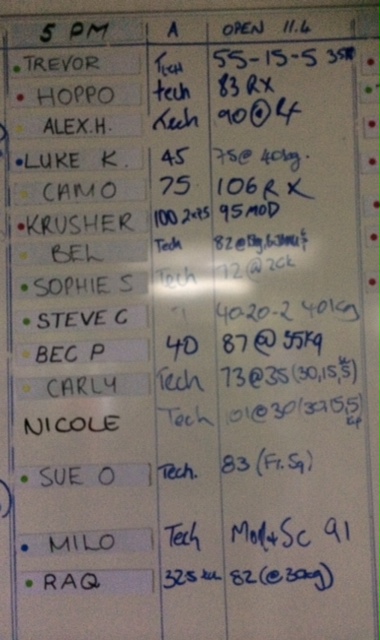 5 PM A OPEN 11.4
TREVOR Tech 55-15-5 35k
HOPPO tech 83 RX
ALEX.H. Tech 90@4
LUKE K. 45 75@ 40kg.
CAMO 75 106 RX
KRUSHER 100 2x75 95 MOD
BEL Tech 82@
SOPHIE S Tech 72@
STEVE C 40-20-2 40kg
BEC P 40 87@ 35kg
CARLY Tech 73@35(30,15,5)
NICOLE Tech @30
SUE O Tech. 83 (Fr.Sq)
MILO Tech Mod+Sc 91
RAQ 32.5 82 (@30kg)